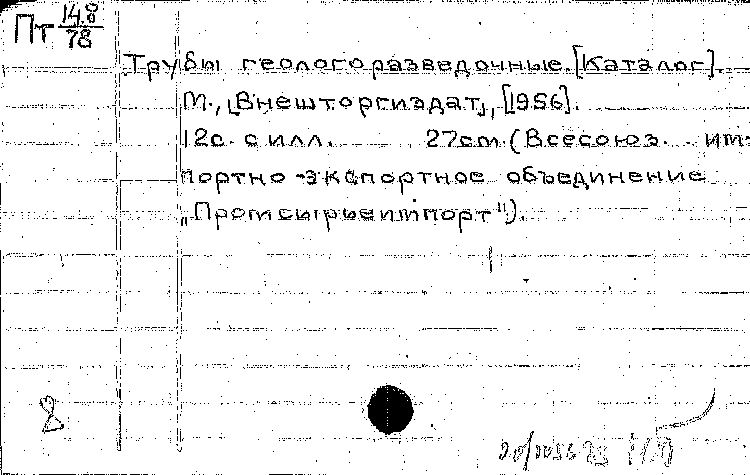 Пт 148/78
Трубы геологоразведочные. [Каталог].
М., [Внешторгиздат], [1956].
12с. с илл. 27см. (Всесоюз. им-
портно-экспортное объединение
„Промсырьеимпорт").
2